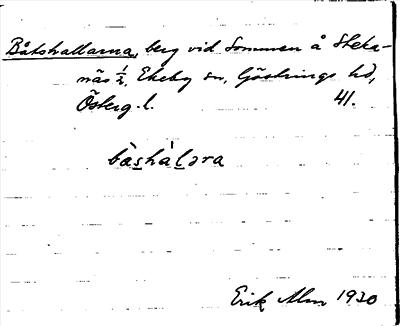 Båtshallarna, berg vid Sommen å Steka-
näs 1/2, Ekeby sn, Göstrings hd,
Österg. l. 41.
bàs̲hàl̲əra
Erik Alm 1930